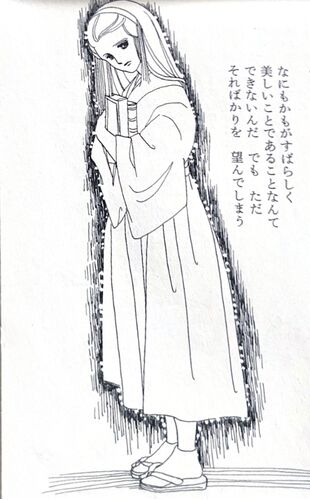 なにもかもがすばらしく
美しいことであることなんて
できないんだ でも ただ
そればかりを 望んでしまう